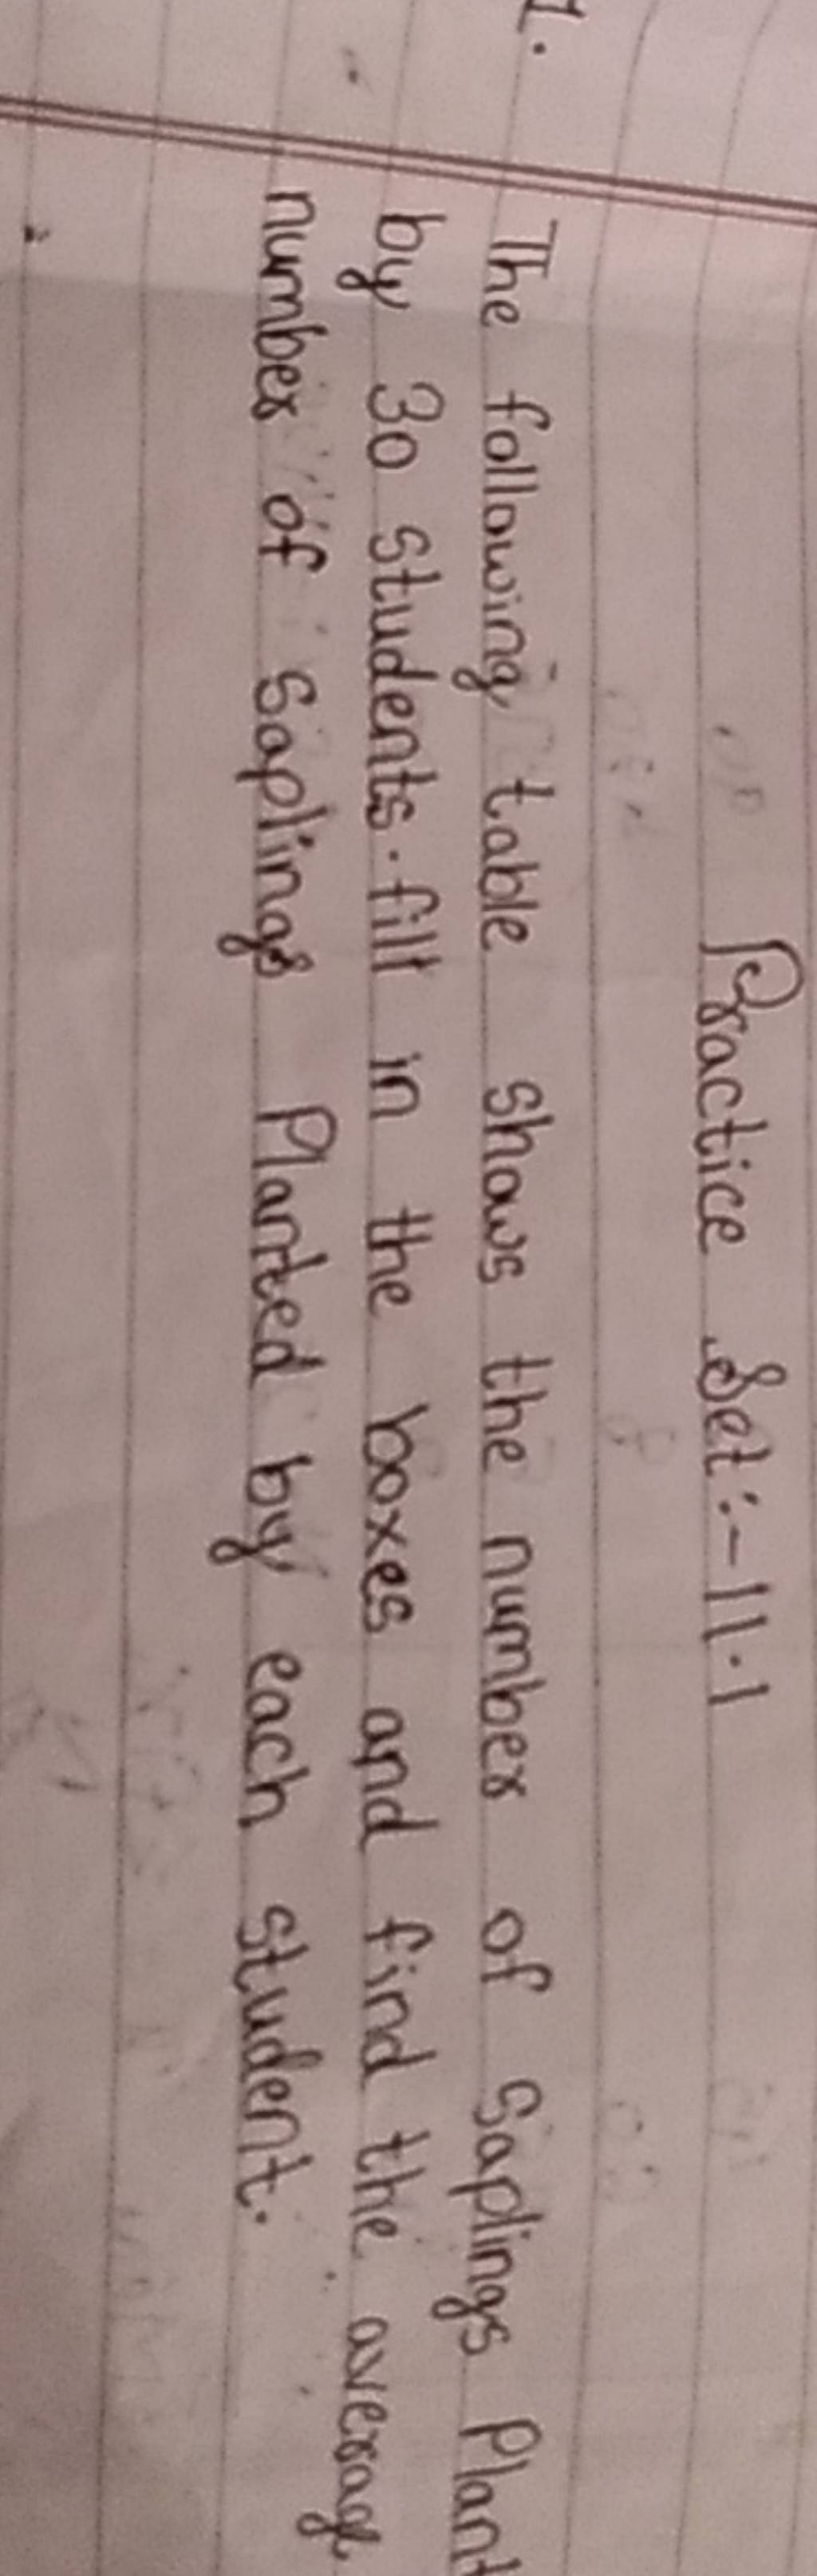 Practice Set :- 11.1
1. The following table shows the number of Saplings Plant
by 30 students. fill in the boxes and find the average
number of Saplings Planted by each student.